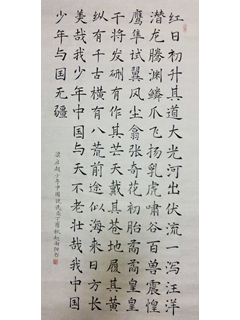 红日初升其道大光河出伏流一泻汪洋
潜龙腾渊鳞爪飞扬乳虎啸谷百兽震惶
鹰隼试翼风尘翕张奇花初胎矞矞皇皇
干将发硎有作其芒天戴其苍地履其黄
纵有千古横有八荒前途似海来日方长
美哉我少年中国与天不老壮哉我中国
少年与国无疆
梁启超少年中国说